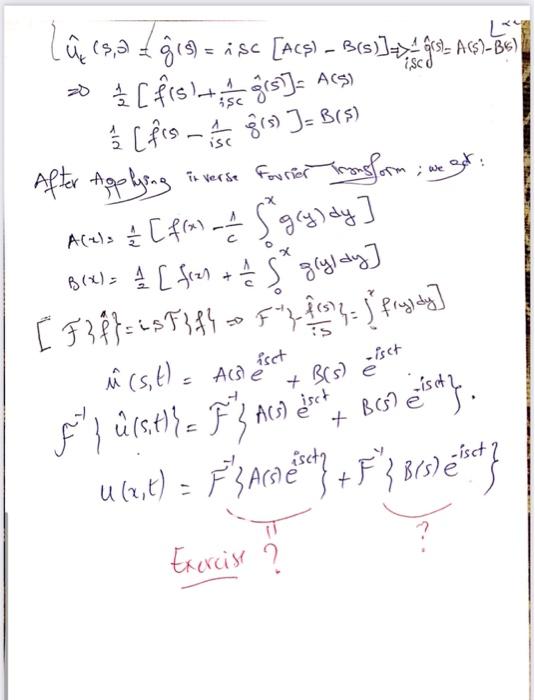 û_t (s,0) = ĝ(s) = isc [A(s) - B(s)] ⇒ 1/isc ĝ(s) = A(s) - B(s)
⇒ 1/2 [f̂(s) + 1/isc ĝ(s)] = A(s)
1/2 [f̂(s) - 1/isc ĝ(s)] = B(s)
After Applying inverse Fourier Transform ; we get :
A(x) = 1/2 [f(x) - 1/c ∫_0^x g(y) dy]
B(x) = 1/2 [f(x) + 1/c ∫_0^x g(y) dy]
[F{f̂} = is F{f} ⇒ F^-1{f̂(s)/is} = ∫^x f(y) dy]
û (s,t) = A(s) e^isct + B(s) e^-isct
F^-1{û(s,t)} = F^-1{A(s) e^isct + B(s) e^-isct}.
u(x,t) = F^-1{A(s) e^isct} + F^-1{B(s) e^-isct}
= ?
Exercise ?